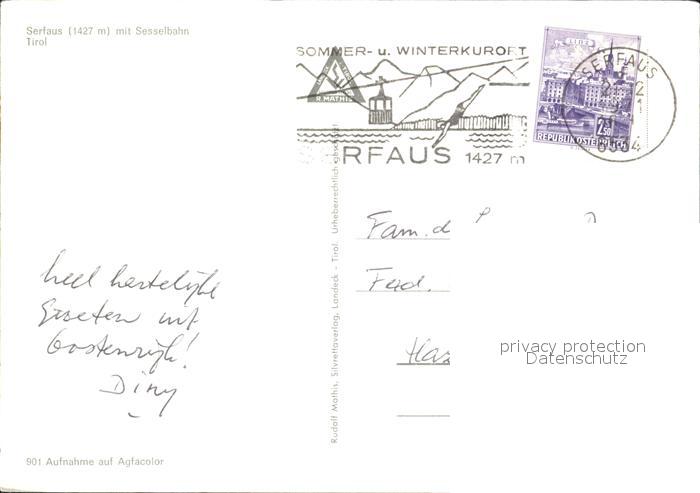 Serfaus (1427 m) mit Sesselbahn
Tirol
SOMMER- u. WINTERKURORT
R. MATHIS
SERFAUS 1427 m
LINZ
2.50
REPUBLIK ÖSTERREICH
SERFAUS
6534
Rudolf Mathis, Silvrettaverlag, Landeck - Tirol. Urheberrechtlich geschützt
Fam. d
P
Ferd.
Has
privacy protection
Datenschutz
heel hartelijke
Groeten uit
Oostenrijk!
Diny
901 Aufnahme auf Agfacolor